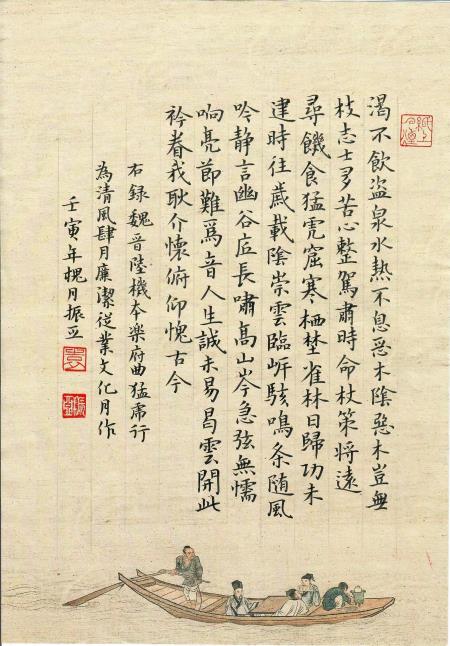 渴不飲盗泉水熱不息恶木陰惡木豈無
枝志士多苦心整駕肅時命杖策將遠
尋饑食猛虎窟寒栖埜雀林日歸功未
建時往歲載陰崇雲臨岍駭鳴条随風
吟静言幽谷底長嘯高山岑急弦無懦
响亮節難爲音人生誠未易曷雲開此
衿眷我耿介懷俯仰愧古今
右録魏晋陸機本樂府曲猛虎行
為清風肆月廉潔從業文化月作
壬寅年槐月振亞